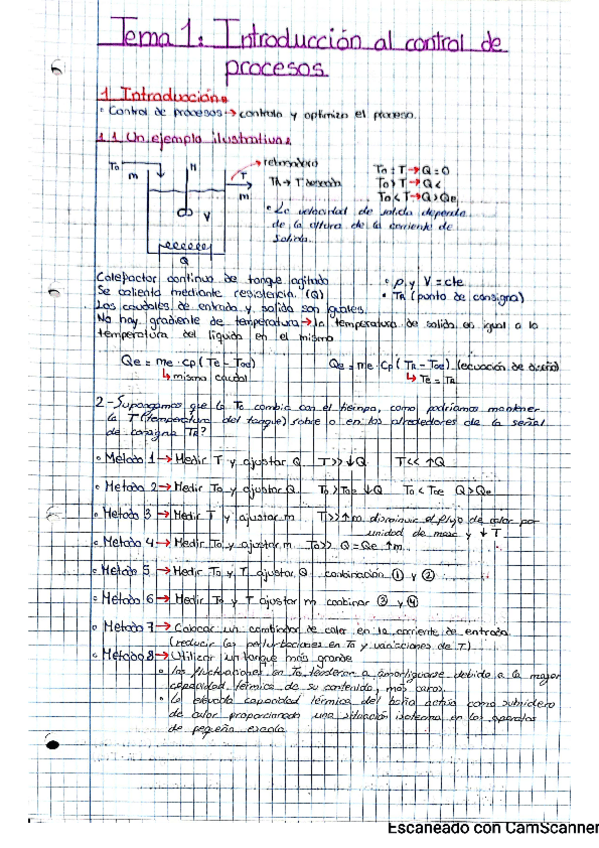 Tema 1: Introducción al control de
procesos.
1 Introducción.
• Control de procesos → controla y optimiza el proceso.
1.1 Un ejemplo ilustrativo.
To
m
H
T
m
V
Q
TR → T deseada
To = T → Q = 0
To > T → Q <
To < T → Q > Qe
• La velocidad de salida depende
de la altura de la corriente de
salida.
Calefactor continuo de tanque agitado
Se calienta mediante resistencia (Q)
Los caudales de entrada y salida son iguales.
No hay gradiente de temperatura → la temperatura de salida es igual a la
temperatura del líquido en el mismo
• ρ, y V = cte
• TR (punto de consigna)
Qe = me · Cp (Te - Toe)
↳ mismo caudal
Qe = me · Cp (TR - Toe) (ecuación de diseño)
↳ Te = TR
2 - Supongamos que la To cambia con el tiempo, como podríamos mantener
la T (temperatura del tanque) sobre o en los alrededores de la señal
de consigna TR?
• Metodo 1 → Medir T y ajustar Q T>> ↓Q T<< ↑Q
• Metodo 2 → Medir To y ajustar Q. To > Toe ↓Q To < Toe Q > Qe
• Metodo 3 → Medir T y ajustar m T>> ↑m disminuir el flujo de calor por
unidad de masa y ↓T
• Metodo 4 → Medir To y ajustar m To>> Q = Qe ↑m
• Metodo 5 → Medir To y T ajustar Q combinación ① y ②
• Metodo 6 → Medir To y T ajustar m combinar ③ y ④
• Metodo 7 → Colocar un cambiador de calor en la corriente de entrada
(reducir las perturbaciones en To y variaciones de T)
• Metodo 8 → Utilizar un tanque más grande
• las fluctuaciones en To tenderan a amortiguarse debido a la mayor
capacidad térmica de su contenido, más caros.
• la elevada capacidad térmica del baño actúa como sumidero
de calor proporcionado una situación isoterma en los aparatos
de pequeña escala
Escaneado con CamScanner